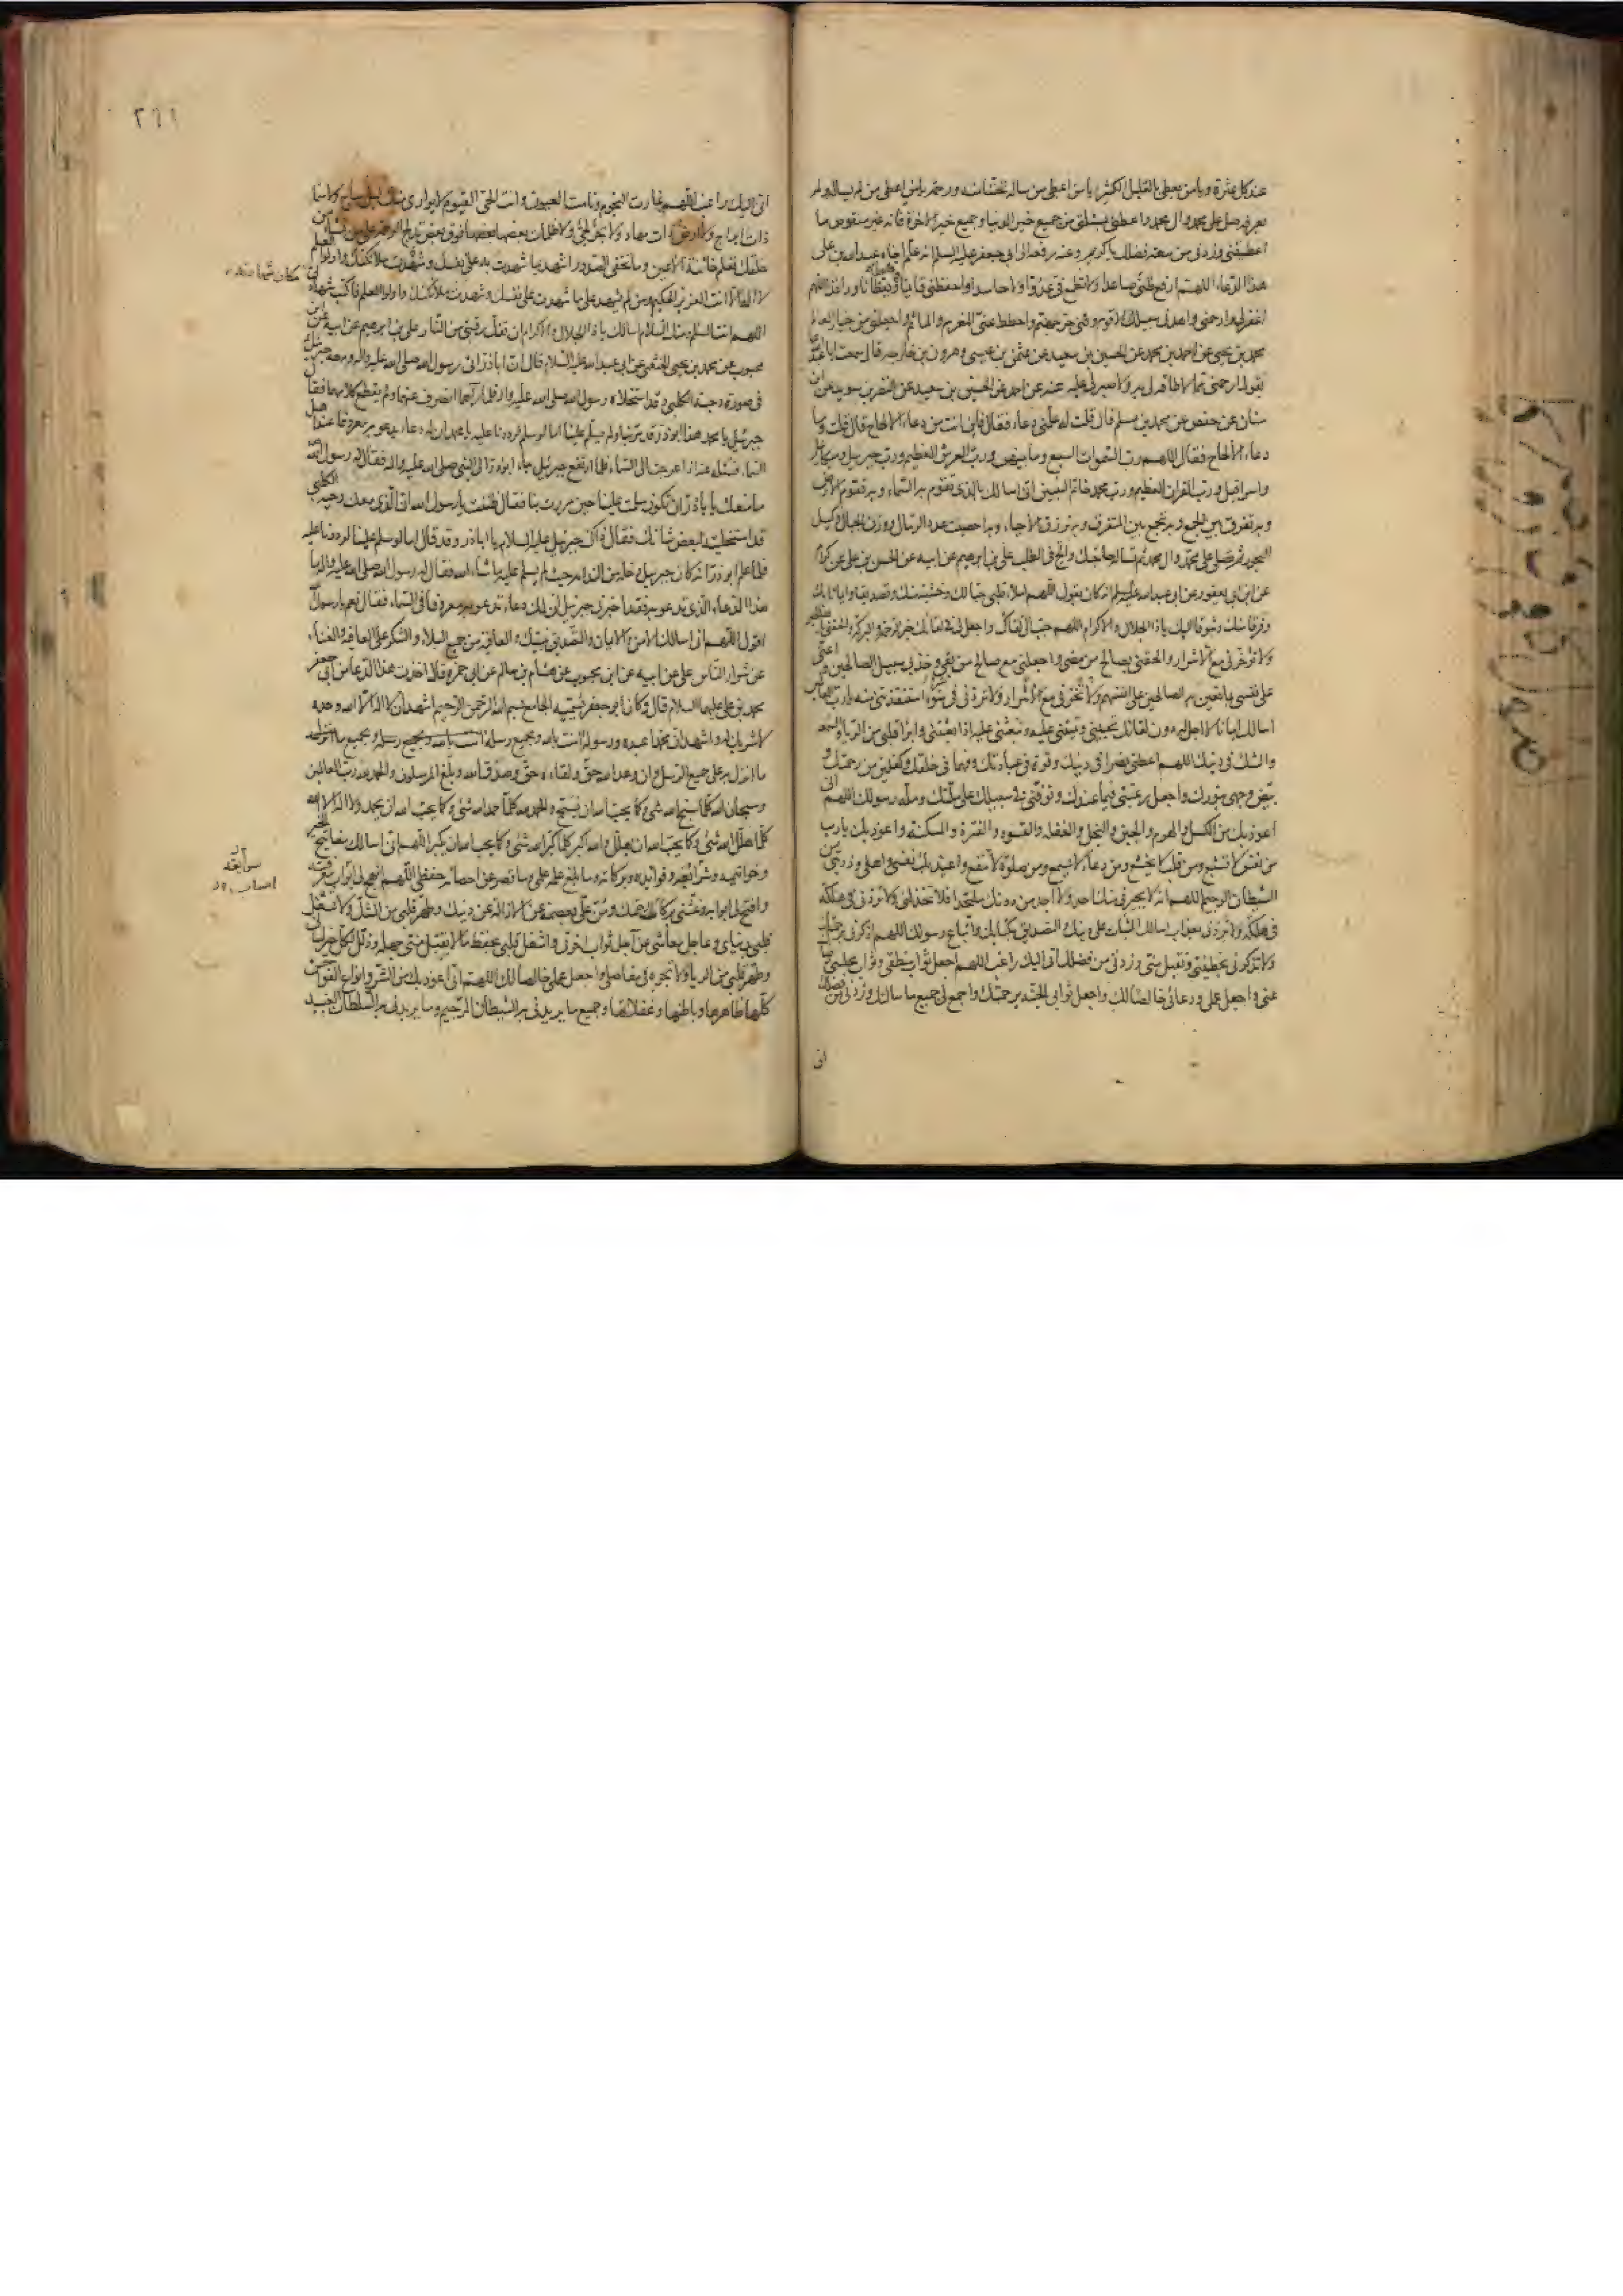 عند كل عثرة ويا من يعطى بالقليل الكثير يا من اعطى من ساله تحننا منه ورحمة يا من اعطى من لم يساله ولم
يعرفه صل على محمد وال محمد واعطنى بمسئلتى من جميع خير الدنيا وجميع خير الاخرة فانه غير منقوص ما
اعطيتنى وزدنى من سعة فضلك يا كريم وعنه رفعه الى ابى جعفر عليه السلام انه علم اخاه عبد الله بن على
هذا الدعاء اللهم ارفع ظنى صاعدا ولا تطمع فى عدوا ولا حاسدا واحفظنى قائما وقاعدا ويقظانا وراقدا اللهم
اغفر لى وارحمنى واهدنى سبيلك الاقوم وقنى حر جهنم واحطط عنى المغرم والماثم واجعلنى من خيار العالم
محمد بن يحيى عن احمد بن محمد عن الحسين بن سعيد عن عثمن بن عيسى وهرون بن خارجه قال سمعت ابا عبد الله
يقول ارحمنى مما لا طاقة لى به ولا صبر لى عليه عنه عن احمد عن الحسين بن سعيد عن النضر بن سويد عن ابن
سنان عن حفص عن محمد بن مسلم قال قلت له علمنى دعاء فقال فاين انت من دعاء الالحاح قال قلت وما
دعاء الالحاح فقال اللهم رب السموات السبع وما بينهن ورب العرش العظيم ورب جبرئيل وميكائيل
واسرافيل ورب القران العظيم ورب محمد خاتم النبيين انى اسالك بالذى تقوم به السماء وبه تقوم الارض
وبه تفرق بين الجمع وبه تجمع بين المتفرق وبه ترزق الاحياء وبه احصيت عدد الرمال ووزن الجبال وكيل
البحور ثم تصلى على محمد وال محمد ثم تساله حاجتك والح فى الطلب على بن ابرهيم عن ابيه عن الحسن بن على عن كرام
عن ابن ابى يعفور عن ابى عبد الله عليه السلم انه كان يقول اللهم املا قلبى حبا لك وخشية منك وتصديقا وايمانا بك
وفرقا منك وشوقا اليك يا ذا الجلال والاكرام اللهم حبب الى لقاك واجعل لى فى لقائك خير الرحمة والبركة والحقنى بالصالحين
ولا تؤخرنى مع الاشرار والحقنى بصالح من مضى واجعلنى مع صالح من بقى وخذ بى سبيل الصالحين واعنى
على نفسى بما تعين به الصالحين على انفسهم ولا تخزنى مع الاشرار ولا تردنى فى سوء استنقذتنى منه يا رب العالمين
اسالك ايمانا لا اجل له دون لقائك تحيينى وتميتنى عليه وتبعثنى عليه اذا بعثتنى وابرا قلبى من الرياء والسمعة
والشك فى دينك اللهم اعطنى نصرا فى دينك وقوة فى عبادتك وفهما فى خلقك وكفلين من رحمتك و
بيض وجهى بنورك واجعل رغبتى فيما عندك وتوفنى فى سبيلك على ملتك وملة رسولك اللهم انى
اعوذ بك من الكسل والهرم والجبن والبخل والغفلة والقسوة والفترة والمسكنة واعوذ بك يا رب
من نفس لا تشبع ومن قلب لا يخشع ومن دعاء لا يسمع ومن صلوة لا تنفع واعيذ بك نفسى واهلى وذريتى من
الشيطان الرجيم اللهم انه لا يجيرنى منك احد ولا اجد من دونك ملتحدا فلا تخذلنى ولا تردنى فى هلكة
ولا تردنى بعذاب اسالك الثبات على دينك والتصديق بكتابك واتباع رسولك اللهم اذكرنى برحمتك
ولا تذكرنى بخطيئتى وتقبل منى وزدنى من فضلك انى اليك راغب اللهم اجعل ثواب منطقى وثواب مجلسى رضاك
عنى واجعل عملى ودعائى خالصا لك واجعل ثوابى الجنة برحمتك واجمع لى جميع ما سالتك وزدنى من فضلك
انى
٢٦١
انى اليك راغب اللهم غارت النجوم ونامت العيون وانت الحى القيوم لا يوارى منك ليل ساج ولا سماء
ذات ابراج ولا ارض ذات مهاد ولا بحر لجى ولا ظلمات بعضها فوق بعض تدلج الرحمة على من تشاء من
خلقك تعلم خائنة الاعين وما تخفى الصدور اشهد بما شهدت به على نفسك وشهدت ملائكتك واولوا العلم
لا اله الا انت العزيز الحكيم ومن لم يشهد على ما شهدت على نفسك وشهدت ملائكتك واولوا العلم فاكتب شهادتى
مكان شهادته
اللهم انت السلم ومنك السلام اسالك يا ذا الجلال والاكرام ان تفك رقبتى من النار على بن ابرهيم عن ابيه عن ابن
محبوب عن محمد بن يحيى الخثعمى عن ابى عبد الله عليه السلام قال ان ابا ذر اتى رسول الله صلى الله عليه واله ومعه جبرئيل
فى صورة دحية الكلبى وقد استخلاه رسول الله صلى الله عليه واله فلما راهما انصرف عنهما ولم يقطع كلامهما فقال
جبرئيل يا محمد هذا ابو ذر قد مر بنا ولم يسلم علينا اما لو سلم لرددنا عليه يا محمد ان له دعاء يدعو به معروفا عند اهل
السماء فسله عنه اذا عرجت الى السماء فلما ارتفع جبرئيل جاء ابو ذر الى النبى صلى الله عليه واله فقال له رسول الله
ما منعك يا با ذر ان تكون سلمت علينا حين مررت بنا فقال ظننت يا رسول الله ان الذى معك دحية الكلبى
قد استخليته لبعض شانك فقال ذاك جبرئيل عليه السلام يا ابا ذر وقد قال اما لو سلم علينا لرددنا عليه
فلما علم ابو ذر انه كان جبرئيل دخله من الندامة حيث لم يسلم عليه ما شاء الله فقال له رسول الله صلى الله عليه واله ما
هذا الدعاء الذى تدعو به فقد اخبرنى جبرئيل ان لك دعاء تدعو به معروفا فى السماء فقال نعم يا رسول الله
اقول اللهم انى اسالك الامن والايمان والتصديق بنبيك والعافية من جميع البلاء والشكر على العافية والغناء
عن شرار الناس على عن ابيه عن ابن محبوب عن هشام بن سالم عن ابى حمزة قال اخذت هذا الدعاء من ابى جعفر
محمد بن على عليهما السلام قال وكان ابو جعفر يسميه الجامع بسم الله الرحمن الرحيم اشهد ان لا اله الا الله وحده
لا شريك له واشهد ان محمدا عبده ورسوله امنت بالله وبجميع رسله وبجميع ما انزلت
ما انزل به على جميع الرسل وان وعد الله حق ولقاءه حق وصدق الله وبلغ المرسلون والحمد لله رب العالمين
وسبحان الله كلما سبح الله شئ وكما يحب الله ان يسبح والحمد لله كلما حمد الله شئ وكما يحب الله ان يحمد ولا اله الا الله
كلما هلل الله شئ وكما يحب الله ان يهلل والله اكبر كلما كبر الله شئ وكما يحب الله ان يكبر اللهم انى اسالك مفاتيح الخير
وخواتيمه وشرائعه وفوائده وبركاته وما بلغ علمه علمى وما قصر عن احصائه حفظى اللهم انهج لى ابواب معرفته
سوابغه
وافتح لى ابوابه وغشنى بركات رحمتك ومن على بعصمة عن الازالة عن دينك وطهر قلبى من الشك ولا تشغل
قلبى بدنياى وعاجل معاشى عن اجل ثواب اخرتى واشغل قلبى بحفظ ما لا تقبل منى جهله وذلل لكل خير لسانى
وطهر قلبى من الرياء ولا تجره فى مفاصلى واجعل عملى خالصا لك اللهم انى اعوذ بك من الشر وانواع الفواحش
كلها ظاهرها وباطنها وغفلاتها وجميع ما يريدنى به الشيطان الرجيم وما يريدنى به السلطان العنيد